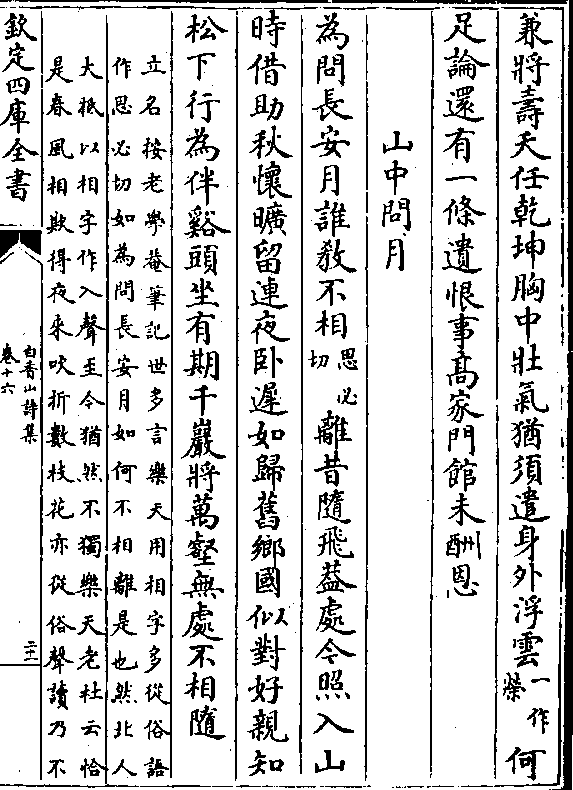 兼將壽夭任乾坤胸中壯氣猶須遣身外浮雲一作榮何
足論還有一條遺恨事髙家門館未酬恩
山中問月
為問長安月誰教不相思必切離昔隨飛葢處今照入山
時借助秋懷曠留連夜卧遲如歸舊鄉國似對好親知
松下行為伴谿頭坐有期千巖將萬壑無處不相隨
立名按老學菴筆記世多言樂天用相字多從俗語
作思必切如為問長安月如何不相離是也然北人
大抵以相字作入聲至今猶然不獨樂天老杜云恰
是春風相欺得夜來吹折數枝花亦從俗聲讀乃不
欽定四庫全書
白香山詩集
卷十六
二十一